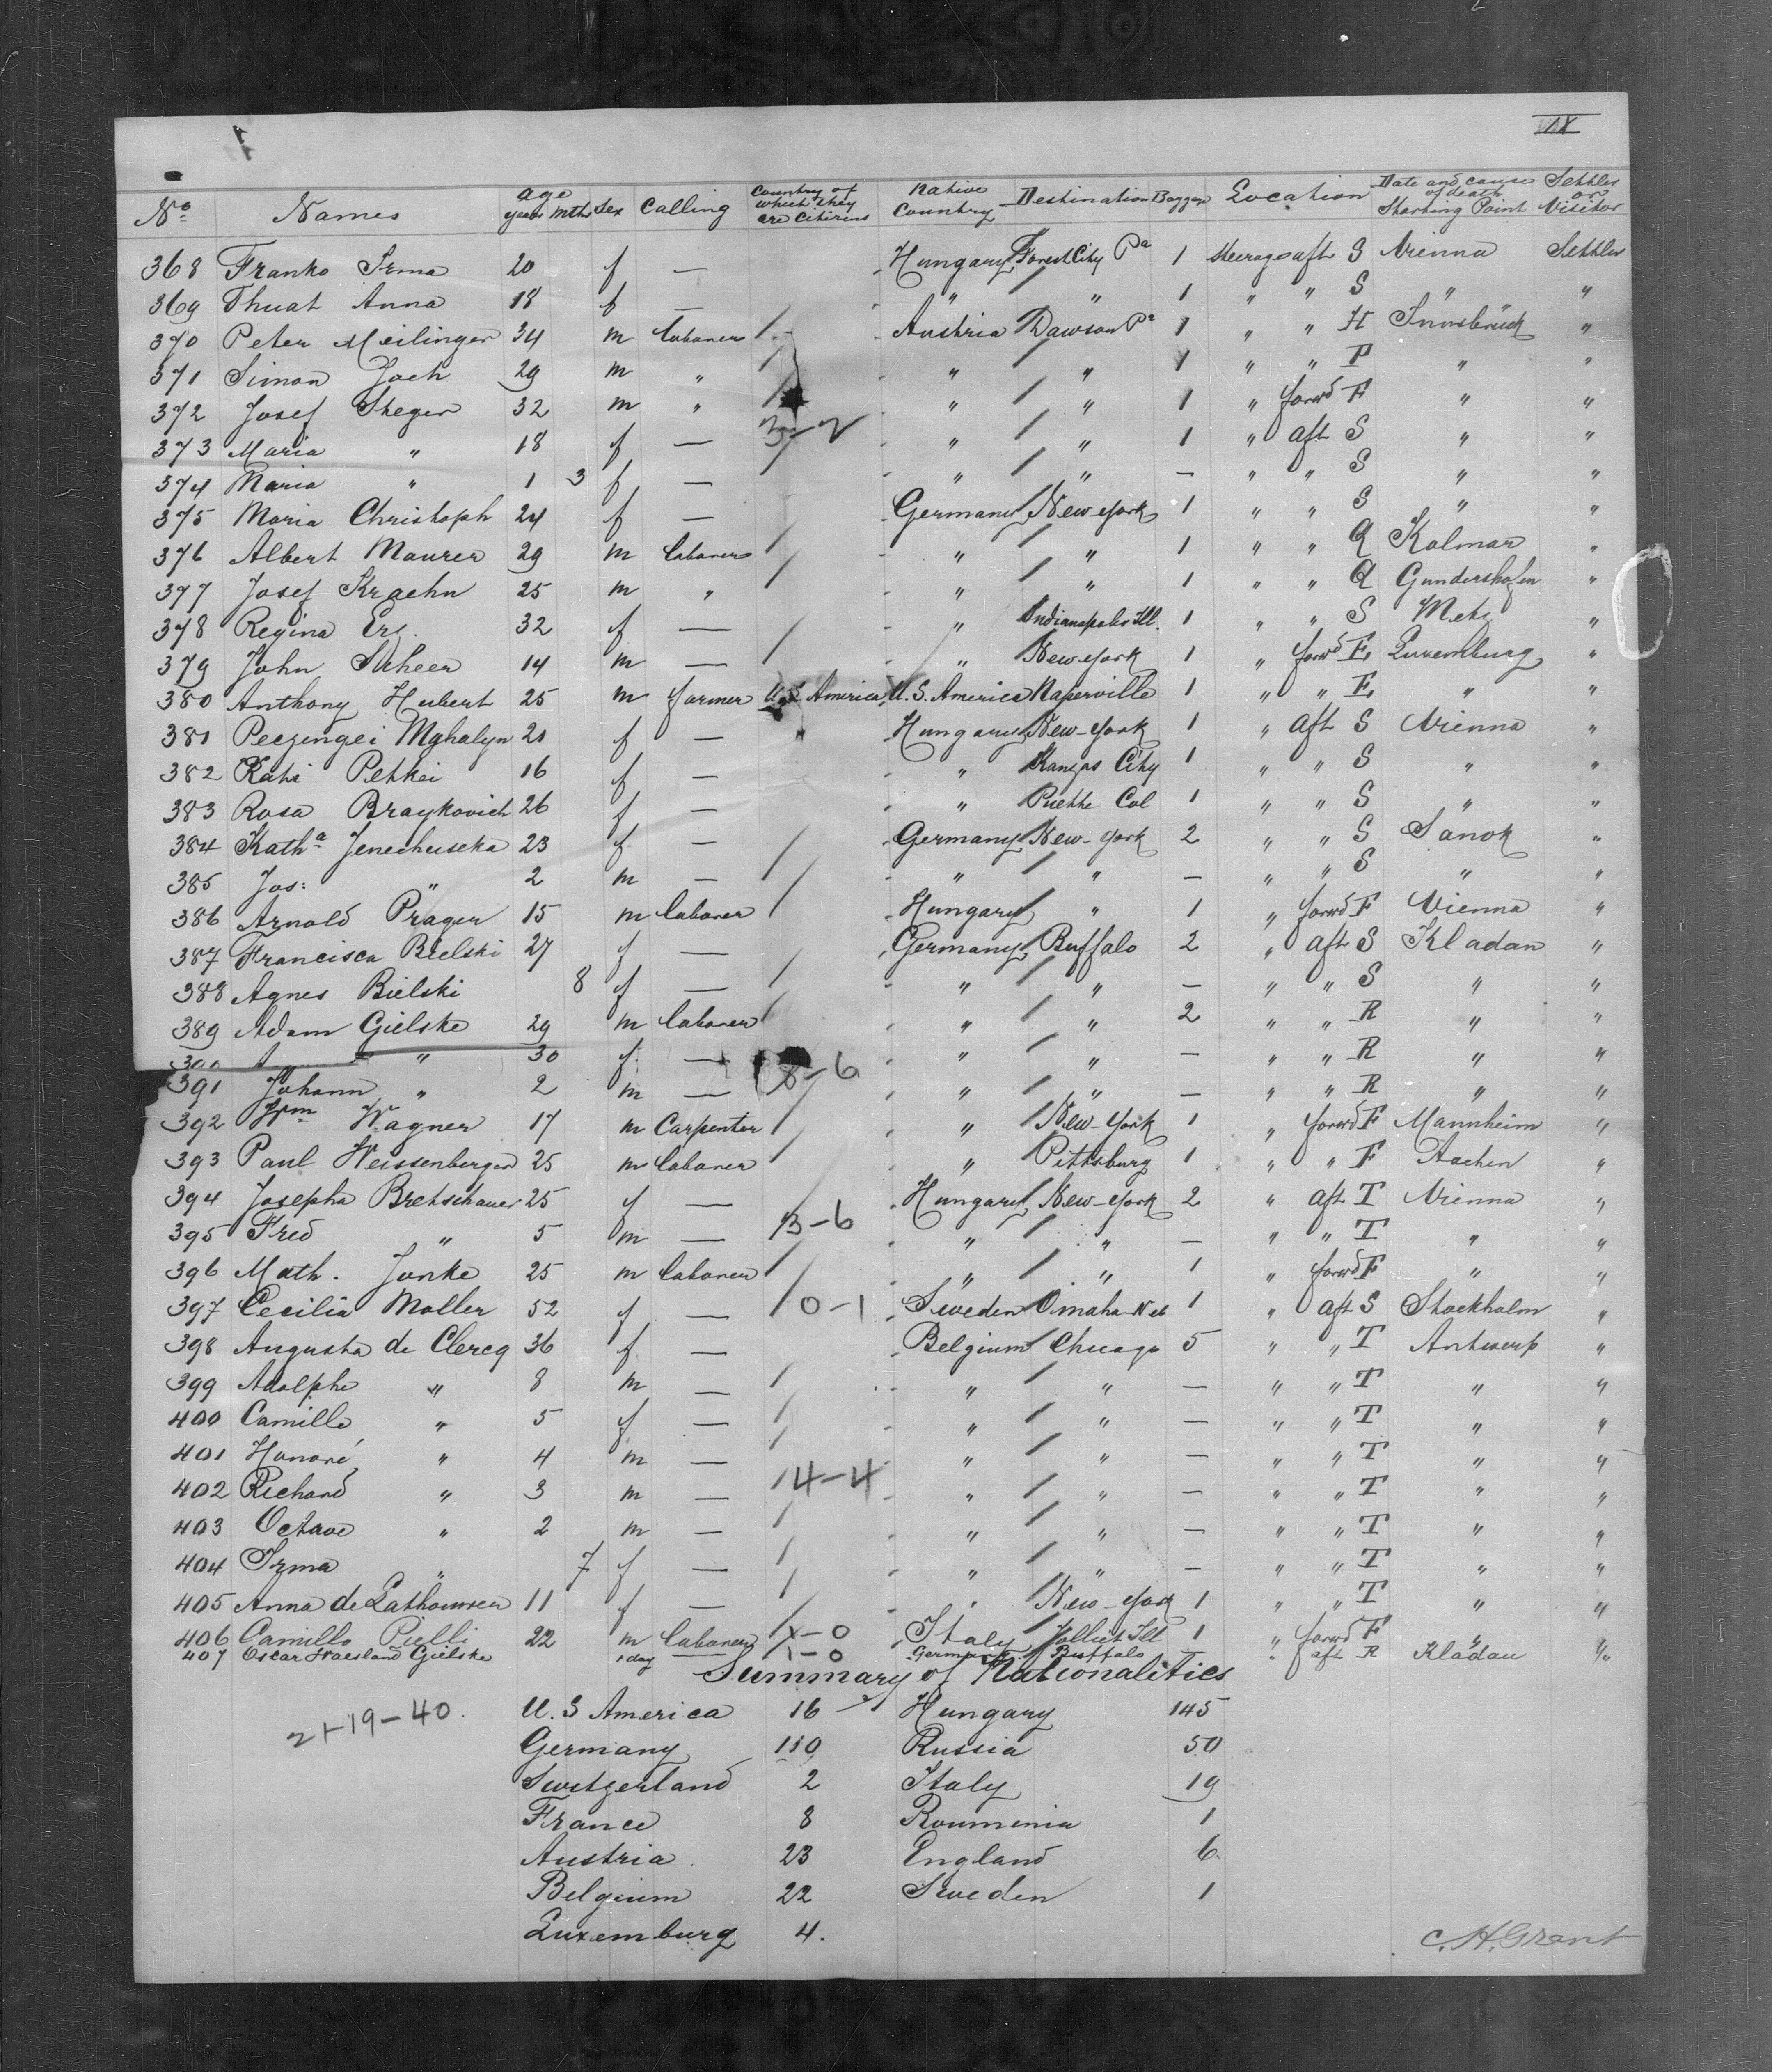 IX
No Names Age years mths Sex Calling Country of which they are Citizens Native Country Destination Baggage Location Date and cause of death Starting Point Settler or Visitor
368 Franko Irma 20 f — Hungary Forest City Pa 1 Steerage aft S Vienna Settler
369 Thuat Anna 18 f — " " 1 " " S " "
370 Peter Meilinger 34 m laborer Austria Dawson Pa 1 " " H Innsbruck "
371 Simon Joch 29 m " " " 1 " " P " "
372 Josef Steger 32 m " " " 1 " forwd F " "
373 Maria " 18 f — 3-2 " " 1 " aft S " "
374 Maria " 1 3 f — " " — " " S " "
375 Maria Christoph 24 f — Germany New-York 1 " " S " "
376 Albert Maurer 29 m laborer " " 1 " " Q Kolmar "
377 Josef Kraehn 25 m " " " 1 " " Q Gundershofen "
378 Regina Erz. 32 f — " Indianapolis Ill. 1 " " S Metz "
379 John Scheer 14 m — " New-York 1 " forwd F Luxemburg "
380 Anthony Hubert 25 m farmer U.S. America U.S. America Naperville 1 " " F " "
381 Peczengei Mghalyn 21 f — Hungary New-York 1 " aft S Vienna "
382 Kati Petkei 16 f — " Kanzas City 1 " " S " "
383 Rosa Braykovich 26 f — " Puebte Col 1 " " S " "
384 Katha Jenechuseka 23 f — Germany New-York 2 " " S Sanok "
385 Jos: " 2 m — " " — " " S " "
386 Arnold Prager 15 m laborer Hungary " 1 " forwd F Vienna "
387 Francisca Bielski 27 f — Germany Buffalo 2 " aft S Kladau "
388 Agnes Bielski 8 f — " " — " " S " "
389 Adam Gielske 29 m laborer " " 2 " " R " "
390 " 30 f — 8-6 " " — " " R " "
391 Johann " 2 m — " " — " " R " "
392 Wm Wagner 17 m Carpenter " New-York 1 " forwd F Mannheim "
393 Paul Weissenberger 25 m laborer " Pittsburg 1 " " F Aachen "
394 Josepha Bretschauer 25 f — Hungary New-York 2 " aft T Vienna "
395 Fred " 5 m — 3-6 " " — " " T " "
396 Math. Junke 25 m laborer " " 1 " forwd F " "
397 Cecilia Moller 52 f — 0-1 Sweden Omaha Neb 1 " aft S Stockholm "
398 Augusta de Clercq 36 f — Belgium Chicago 5 " " T Antwerp "
399 Adolphe " 8 m — " " — " " T " "
400 Camille " 5 f — " " — " " T " "
401 Honoré " 4 m — " " — " " T " "
402 Richard " 3 m — 4-4 " " — " " T " "
403 Octave " 2 m — " " — " " T " "
404 Irma " 7 f — " " — " " T " "
405 Anna de 11 f — " New-York 1 " " T " "
406 Camillo Pielli 22 m laborer 1-0 Italy Jolliet Ill 1 " forwd F " "
407 Oscar Waesland Gielske 1 day — 1-0 Germany Buffalo — " aft R Kladau "
Summary of Nationalities
21-19-40.
U.S America 16 Hungary 145
Germany 110 Russia 50
Switzerland 2 Italy 19
France 8 Roumenia 1
Austria 23 England 6
Belgium 22 Sweden 1
Luxemburg 4.
C. H. Grant